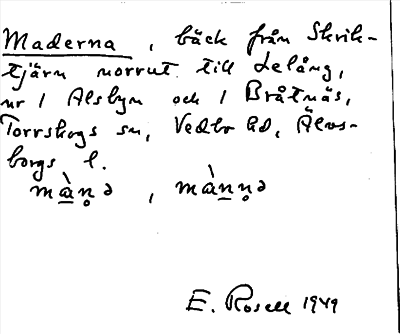 Maderna, bäck från Skrik-
tjärn norrut till Lelång,
nr 1 Alsbyn och 1 Bråtnäs,
Torrskogs sn, Vedbo hd, Älvs-
borgs l.
E. Rosell 1949